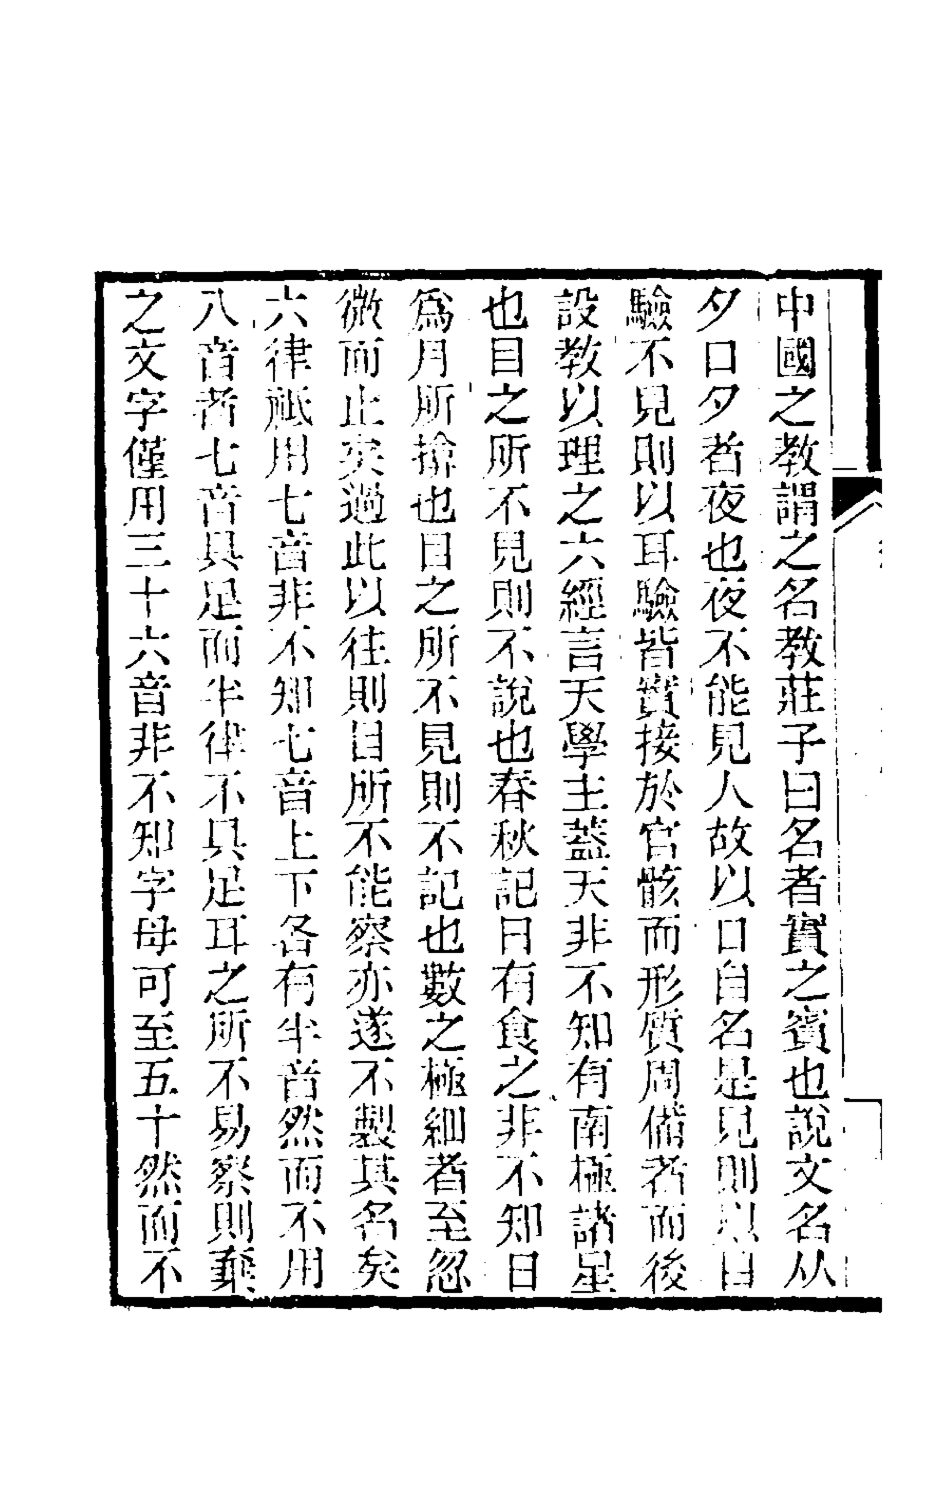 中國之教謂之名教莊子曰名者實之賓也說文名从
夕口夕者夜也夜不能見人故以口自名是見則以目
驗不見則以耳驗皆實接於官骸而形質周備者而後
設教以理之六經言天學主蓋天非不知有南極諸星
也目之所不見則不說也春秋記日有食之非不知日
爲月所揜也目之所不見則不記也數之極細者至忽
微而止矣過此以往則目所不能察亦遂不製其名矣
六律祇用七音非不知七音上下各有半音然而不用
八音者七音具足而半律不具足耳之所不易察則棄
之文字僅用三十六音非不知字母可至五十然而不